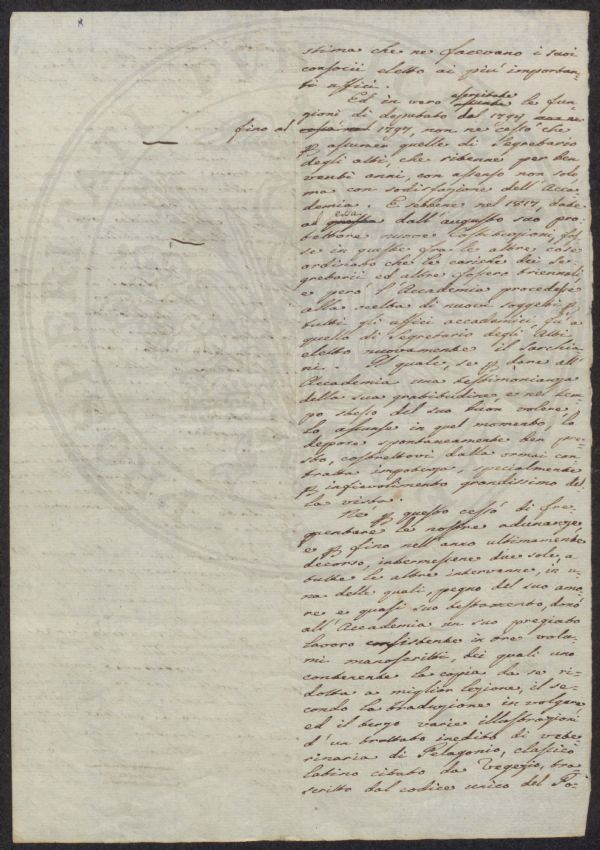 8
stima che ne facevano i suoi
consocii eletto ai più importan-
ti uffici.
Ed in vero esercitate assunte le fun-
zioni di deputato dal 1794
fino al 1797, non ne cessò che
p assumer quelle di Segretario
degli atti, che ritenne per ben
venti anni, con assenso non solo
ma con sodisfazione dell'Acca-
demia. E sebbene nel 1817, date
ad essa questa dall'augusto suo pro-
tettore nuove Costituzioni, fos-
se in queste fra le altre cose
ordinato che le cariche dei Se-
gretarii ed altre fossero biennali
e però l'Accademia procedesse
alla scelta di nuovi soggetti p
tutti gli uffici accademici fu a
quello di Segretario degli Atti
eletto nuovamente il Sarchia-
ni. Il quale, se p dare all'
Accademia una testimonianza
della sua gratitudine e nel tem-
po stesso del suo buon volere,
lo assunse in quel momento, lo
depose spontaneamente ben pre-
sto, costrettovi dalla ormai con-
tratta impotenza, specialmente
p infievolimento grandissimo del-
la vista.
Né p questo cessò di fre-
quentare le nostre adunanze
e p fino nell'anno ultimamente
decorso, intermessane due sole, a
tutte le altre intervenne, in u-
na delle quali, pegno del suo amo-
re e quasi suo testamento, donò
all'Accademia un suo pregiato
lavoro consistente in tre volu-
mi manoscritti, dei quali uno
contenente la copia da se ri-
dotta a miglior lezione, il se-
condo la traduzione in volgare
ed il terzo varie illustrazioni
d'un trattato inedito di vete-
rinaria di Pelagonio, classico
latino citato da Vegezio, tra-
scritto dal codice unico del Po-